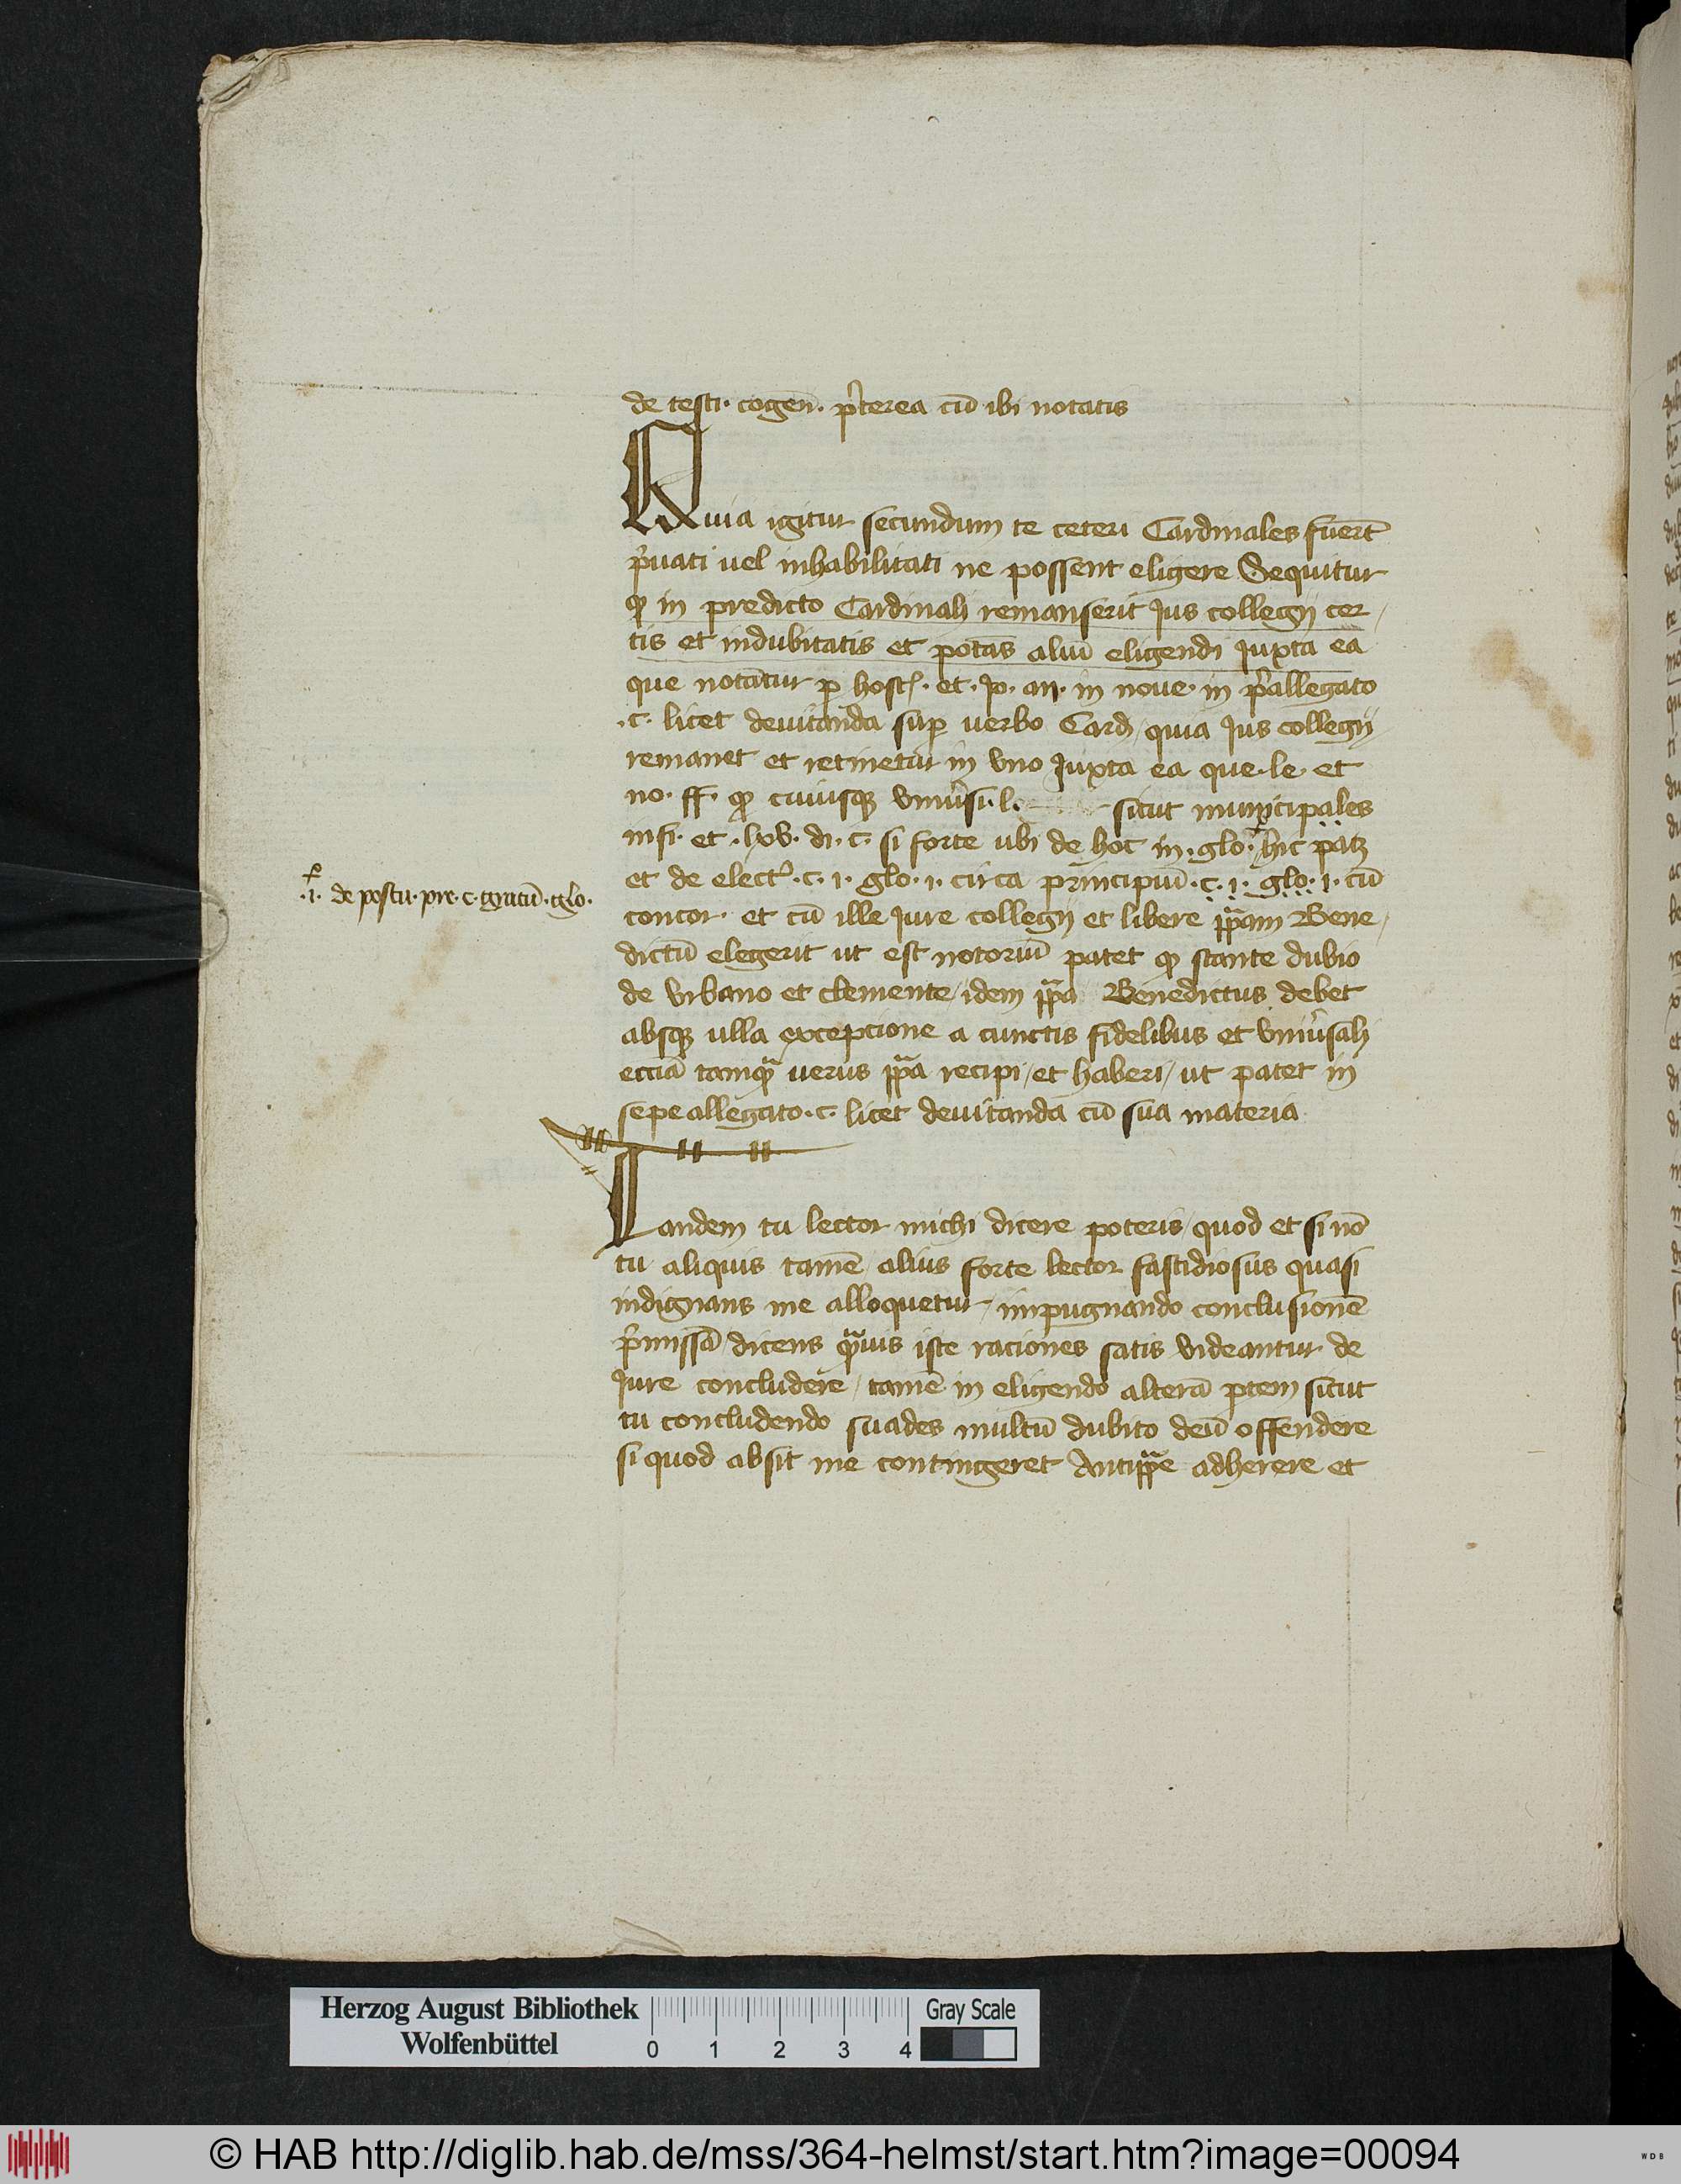 de testi. cogen̄. p̄terea cū ibi notatis
Quia igitur secundum te ceteri Cardinales fuert̄
p̄uati uel inhabilitati ne possent eligere Sequitur
ꝙ in predicto Cardinali remanserit Jus collegij cer
tis et indubitatis et potās aliū eligendi Juxta ea
que notātur ꝑ host. et. Jo. an. in noue. in p̄allegato
.c. licet deuitanda suꝑ uerbo Card / quia Jus collegij
remanet et retinetur in vno Juxta ea que. le. et
no. ff. ꝙ cuiusqꝫ vniu̾si. l. sicut municipales
insi. et. lxv. di. c. si forte ubi de hoc in. glo. / hic patꝫ
.i. de postu. pre. c. gratū. glo.
et de elect̾. c. i. glo. i. circa principiū. c. i. glo. i. cū
concor. et cū ille Jure collegij et libere pp̄am Bene
dictū elegerit ut est notoriū patet ꝙ stante dubio
de vrbano et clemente / idem pp̄a Benedictus debet
absqꝫ ulla excepcione a cunctis fidelibus et vniu̾sali
eccīa tamqᷓ uerus pp̄a recipi / et haberi / ut patet in
sepe allegato. c. licet deuitanda cū sua materia
Tandem tu lector michi dicere poteris / quod et si nō
tu aliquis tamē alius forte lector fastidiosus quasi
indignans me alloquetur / impugnando conclusionē
p̄missā / dicens qᷓuis iste raciones satis videantur de
Jure concludere / tamē in eligendo alterā ꝑtem sicut
tu concludendo suades multū dubito deū offendere
si quod absit me contingeret Antipp̄e adherere et
Herzog August Bibliothek
Wolfenbüttel
0 1 2 3 4
Gray Scale
© HAB http://diglib.hab.de/mss/364-helmst/start.htm?image=00094
W D B